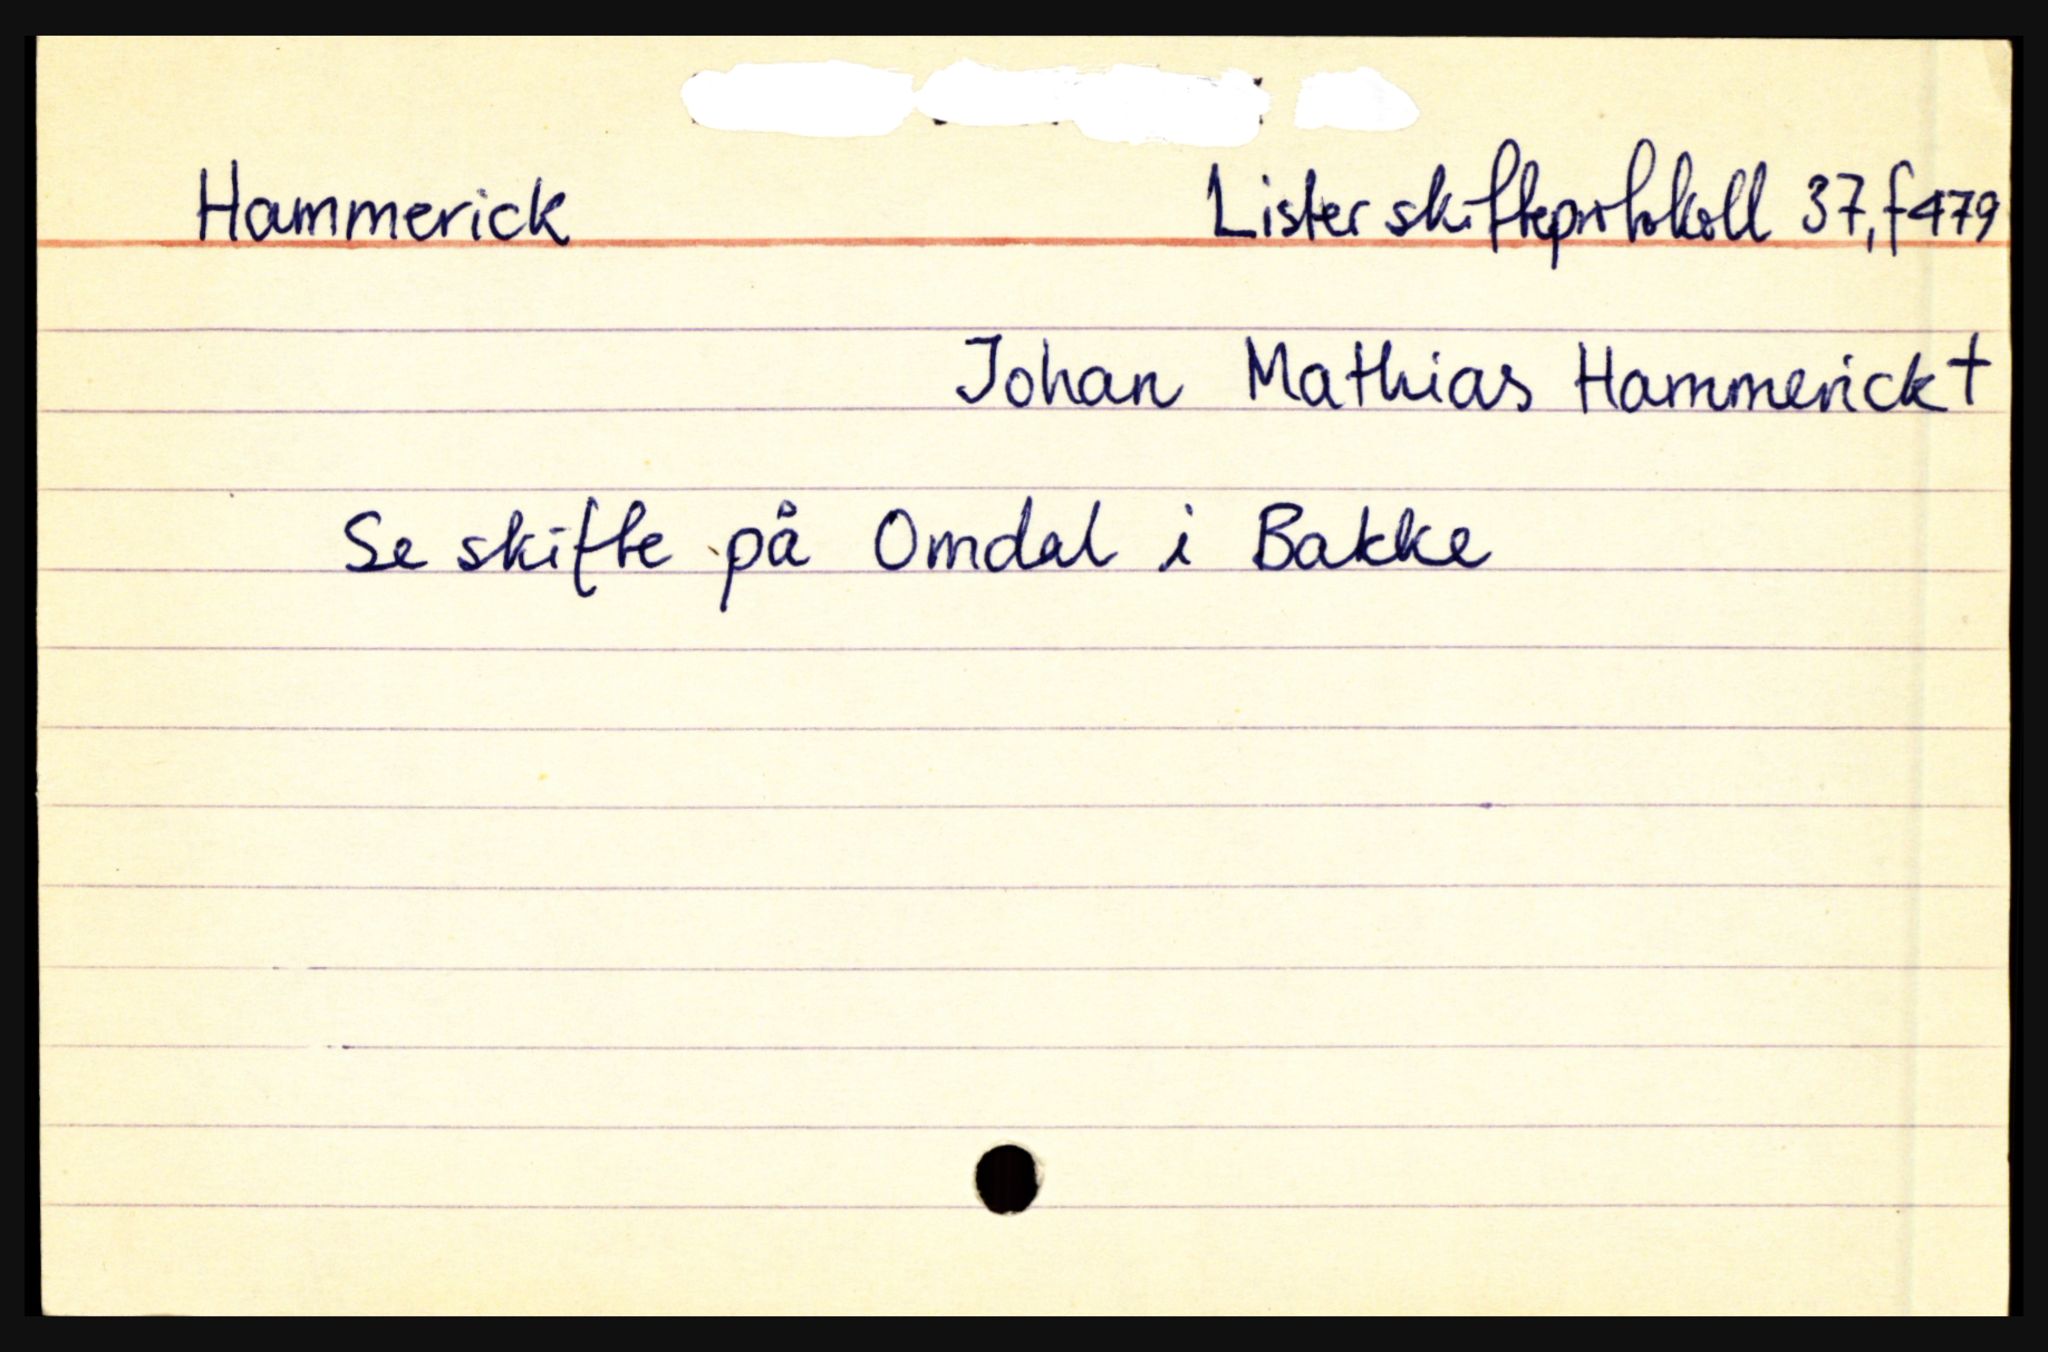 Hammerick Lister skifteprotokoll 37, f 479
Johan Mathias Hammerick †
Se skifte på Omdal i Bakke